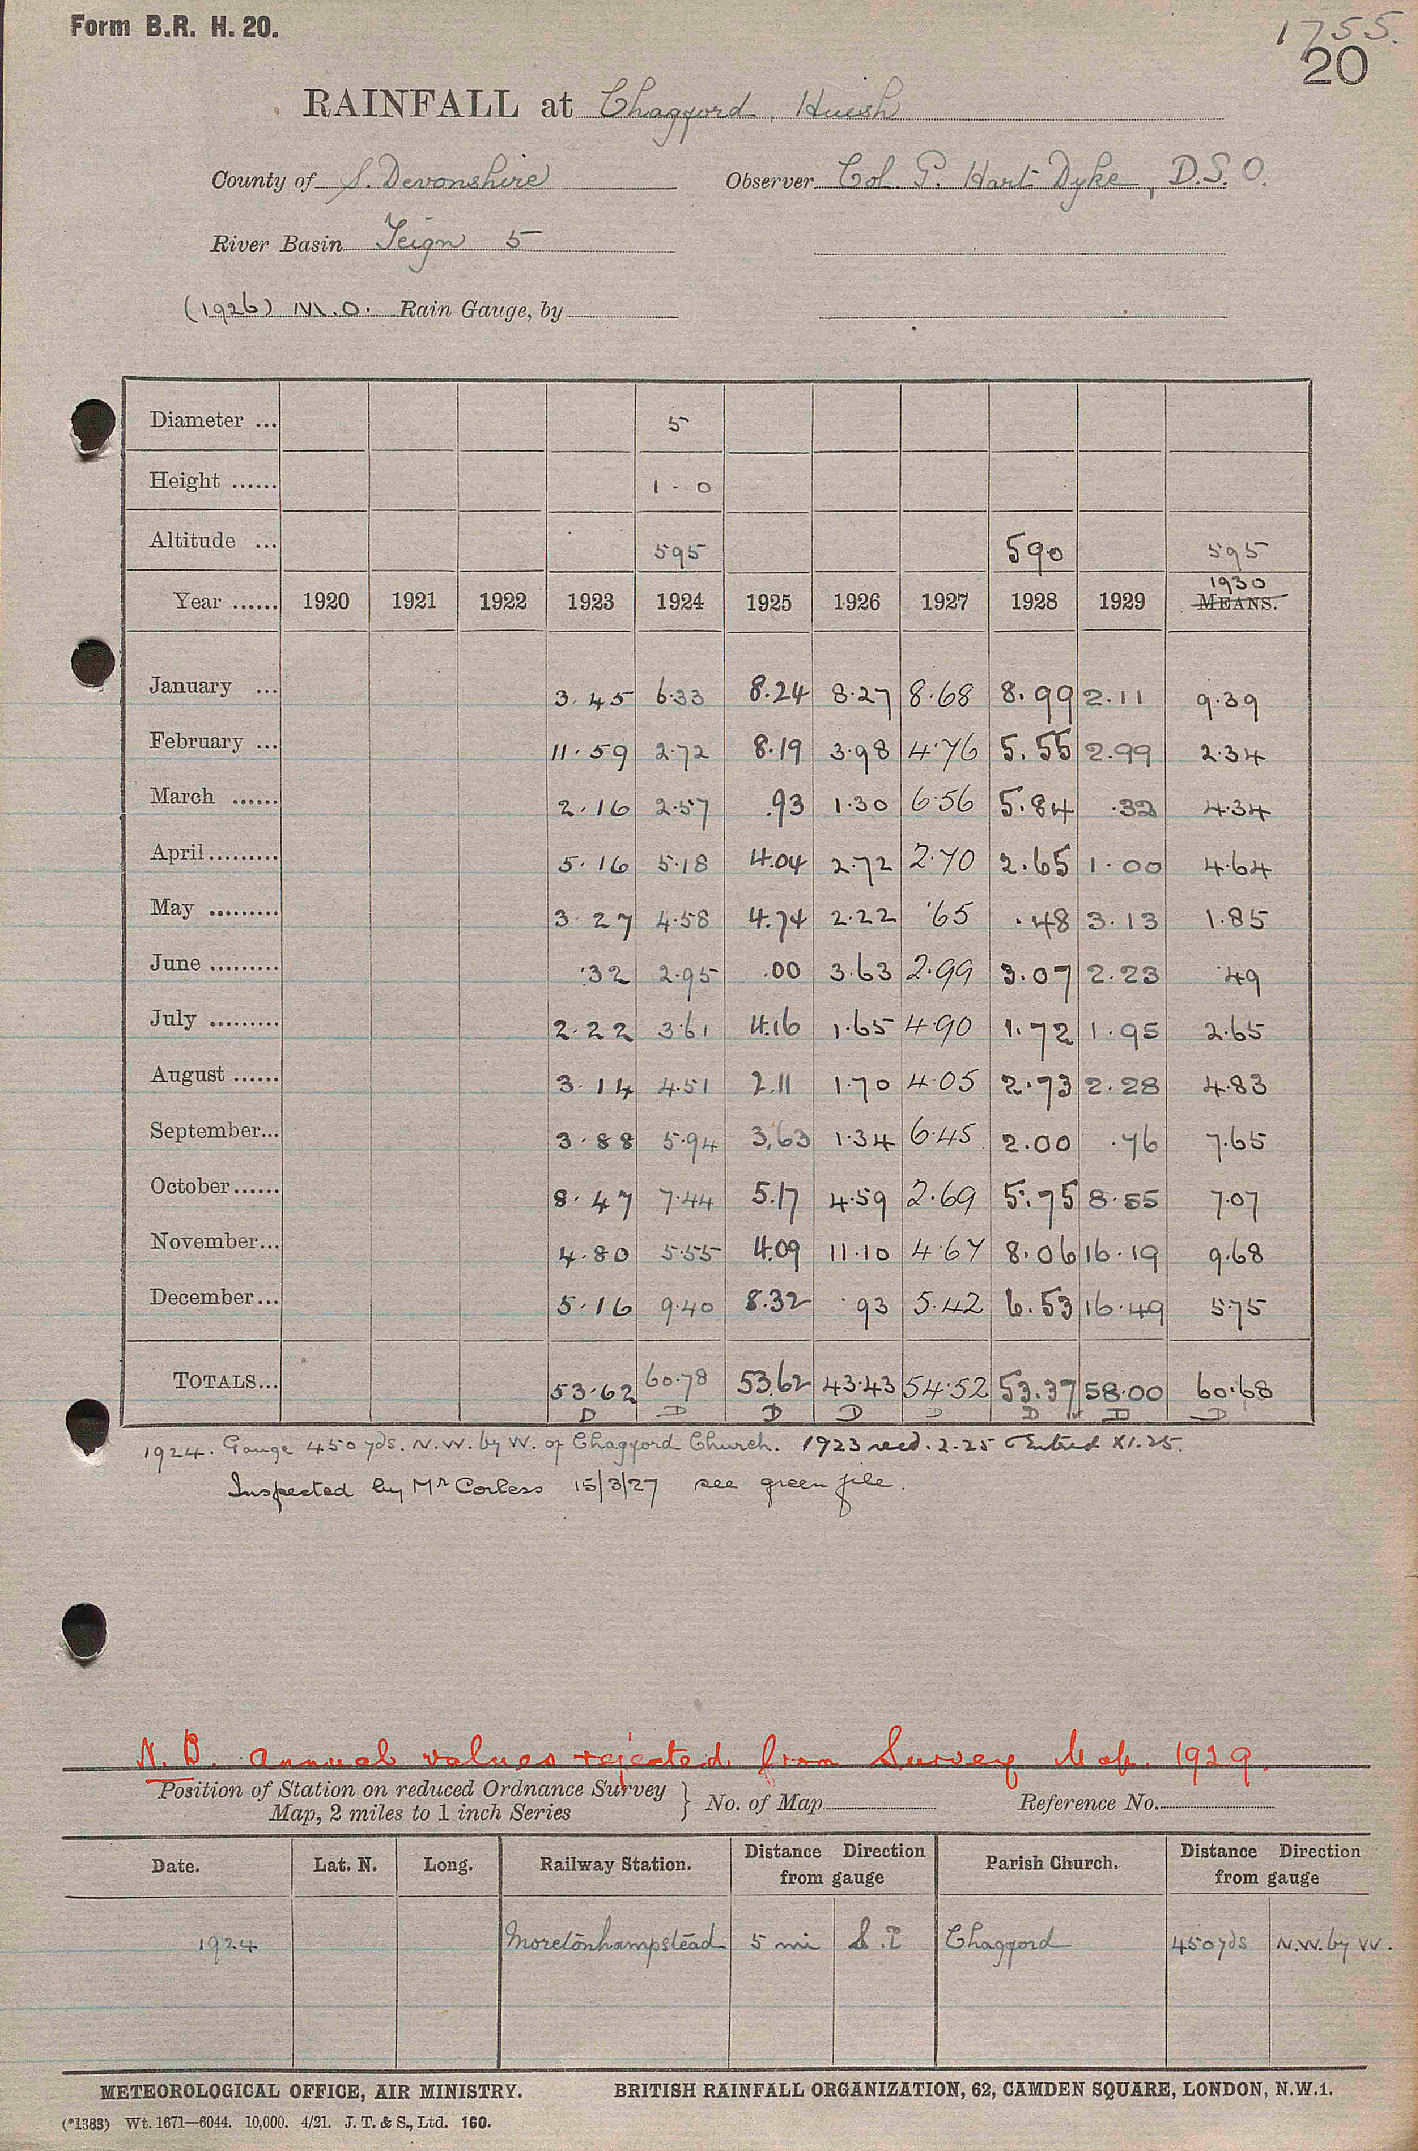 Form B.R. H. 20.
1755.
20
RAINFALL at Chagford, Huish
County of S. Devonshire Observer Col. P. Hart Dyke, D.S.O.
River Basin Teign 5
(1926) M.O. Rain Gauge, by
Diameter ... 5
Height ...... 1 - 0
Altitude ... 595 590 595
Year ...... 1920 1921 1922 1923 1924 1925 1926 1927 1928 1929 1930 MEANS.
January ... 3.45 6.33 8.24 8.27 8.68 8.99 2.11 9.39
February ... 11.59 2.72 8.19 3.98 4.76 5.55 2.99 2.34
March ...... 2.16 2.57 .93 1.30 6.56 5.84 .32 4.34
April ......... 5.16 5.18 4.04 2.72 2.70 2.65 1.00 4.64
May ......... 3.27 4.58 4.74 2.22 .65 .48 3.13 1.85
June ......... .32 2.95 .00 3.63 2.99 3.07 2.23 .49
July ......... 2.22 3.61 4.16 1.65 4.90 1.72 1.95 2.65
August ...... 3.14 4.51 2.11 1.70 4.05 2.73 2.28 4.83
September... 3.88 5.94 3.63 1.34 6.45 2.00 .76 7.65
October...... 8.47 7.44 5.17 4.59 2.69 5.75 8.55 7.07
November... 4.80 5.55 4.09 11.10 4.67 8.06 16.19 9.68
December... 5.16 9.40 8.32 .93 5.42 6.53 16.49 5.75
TOTALS... 53.62 60.78 53.62 43.43 54.52 53.37 58.00 60.68
D D D D D D D D
1924. Gauge 450 yds. N.W. by W. of Chagford Church. 1923 recd. 2.25 Entred XI.25.
Inspected by Mr Corless 15/3/27 see green file.
N.B. Annual values rejected from Survey Map. 1929.
Position of Station on reduced Ordnance Survey
Map, 2 miles to 1 inch Series } No. of Map Reference No.
Date. Lat. N. Long. Railway Station. Distance Direction from gauge Parish Church. Distance Direction from gauge
1924 Moretonhampstead 5 mi S.E Chagford 450 yds N.W. by W.
METEOROLOGICAL OFFICE, AIR MINISTRY. BRITISH RAINFALL ORGANIZATION, 62, CAMDEN SQUARE, LONDON, N.W.1.
(*1383) Wt. 1671—6044. 10,000. 4/21. J. T. & S., Ltd. 160.